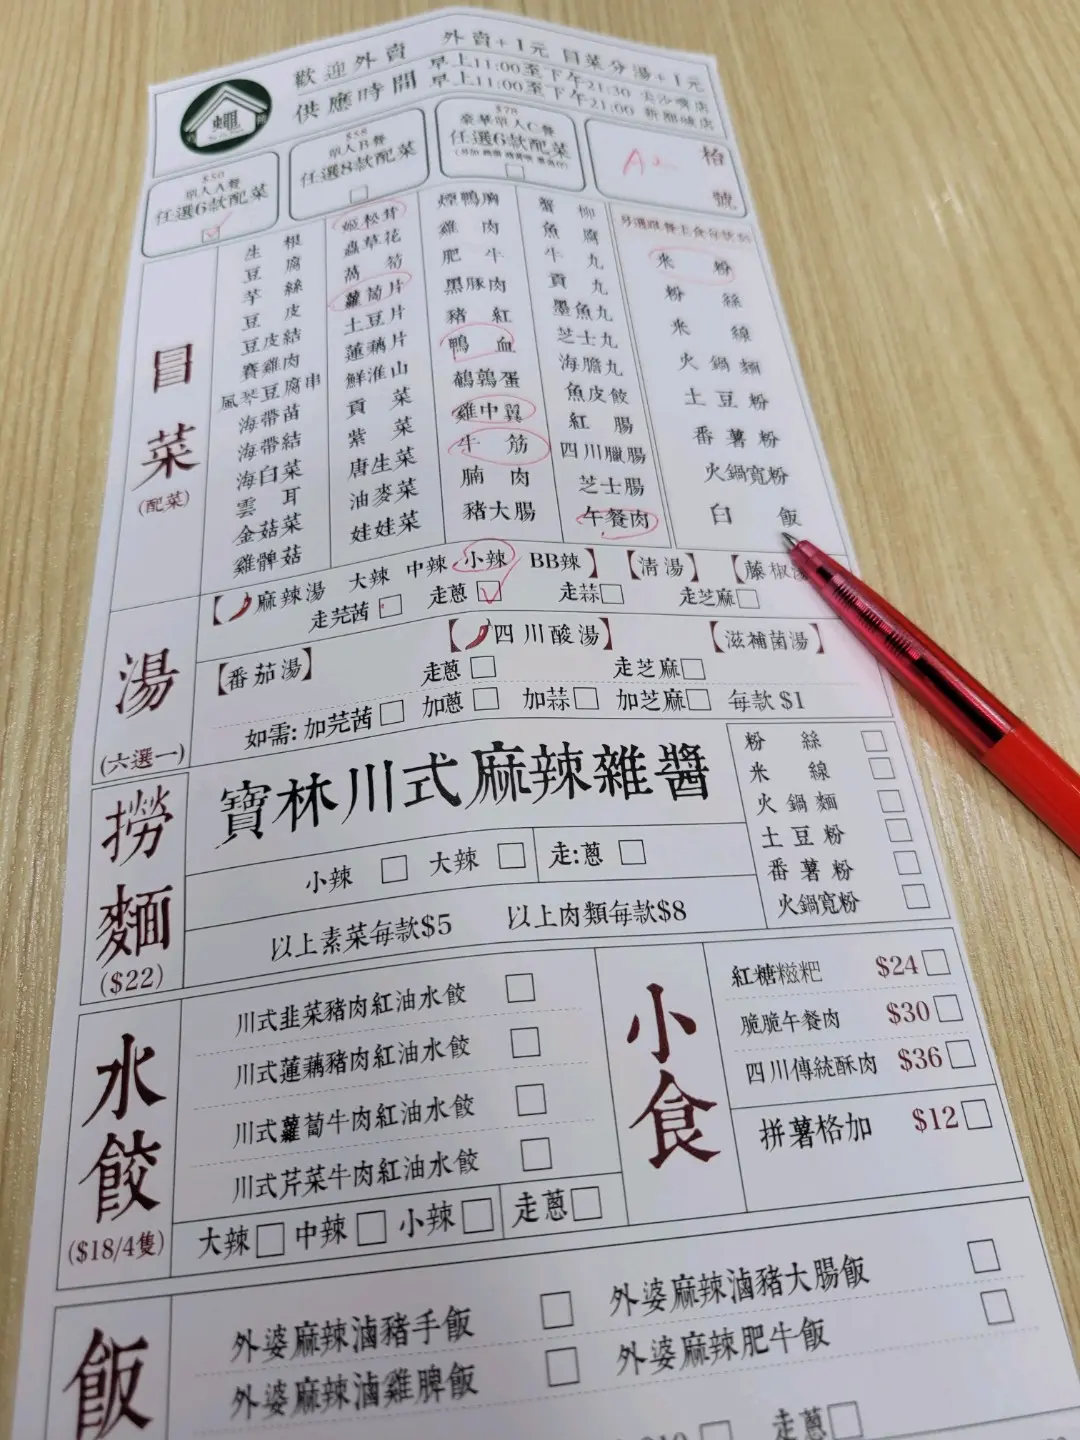 歡迎外賣 外賣+1元 冒菜分湯+1元
供應時間 早上11:00至下午21:30 尖沙嘴店
早上11:00至下午21:00 新都城店
$50
單人A餐
任選6款配菜
$58
單人B餐
任選8款配菜
$78
豪華單人C餐
任選6款配菜
枱號
A2
冒菜
(配菜)
生根
豆腐
芋絲
豆皮
豆皮結
賽雞肉
風琴豆腐串
海帶苗
海帶結
海白菜
雲耳
金菇菜
雞髀菇
姬松茸
蟲草花
萵筍
蘿蔔片
土豆片
蓮藕片
鮮淮山
貢菜
紫菜
唐生菜
油麥菜
娃娃菜
煙鴨胸
雞肉
肥牛
黑豚肉
豬紅
鴨血
鵪鶉蛋
雞中翼
牛筋
腩肉
豬大腸
蟹柳
魚腐
牛丸
貢丸
墨魚丸
芝士丸
海膽丸
魚皮餃
紅腸
四川臘腸
芝士腸
午餐肉
米粉
粉絲
米線
火鍋麵
土豆粉
番薯粉
火鍋寬粉
白飯
湯
(六選一)
【麻辣湯 大辣 中辣 小辣 BB辣】 【清湯】 【藤椒湯
走芫茜 走蔥 走蒜 走芝麻
【番茄湯】 【四川酸湯】 【滋補菌湯】
走蔥 走芝麻
如需: 加芫茜 加蔥 加蒜 加芝麻 每款 $1
撈麵
($22)
寶林川式麻辣雜醬
小辣 大辣 走:蔥
以上素菜每款$5 以上肉類每款$8
粉絲
米線
火鍋麵
土豆粉
番薯粉
火鍋寬粉
水餃
($18/4隻)
川式韭菜豬肉紅油水餃
川式蓮藕豬肉紅油水餃
川式蘿蔔牛肉紅油水餃
川式芹菜牛肉紅油水餃
大辣 中辣 小辣 走蔥
小食
紅糖糍粑 $24
脆脆午餐肉 $30
四川傳統酥肉 $36
拼薯格加 $12
飯
外婆麻辣滷豬手飯
外婆麻辣滷豬大腸飯
外婆麻辣滷雞脾飯
外婆麻辣肥牛飯
走蔥